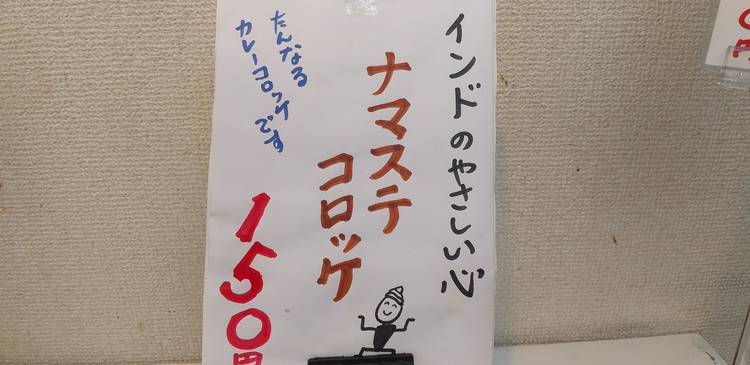 インドのやさしい心
ナマステ
コロッケ
たんなる
カレーコロッケです
150円